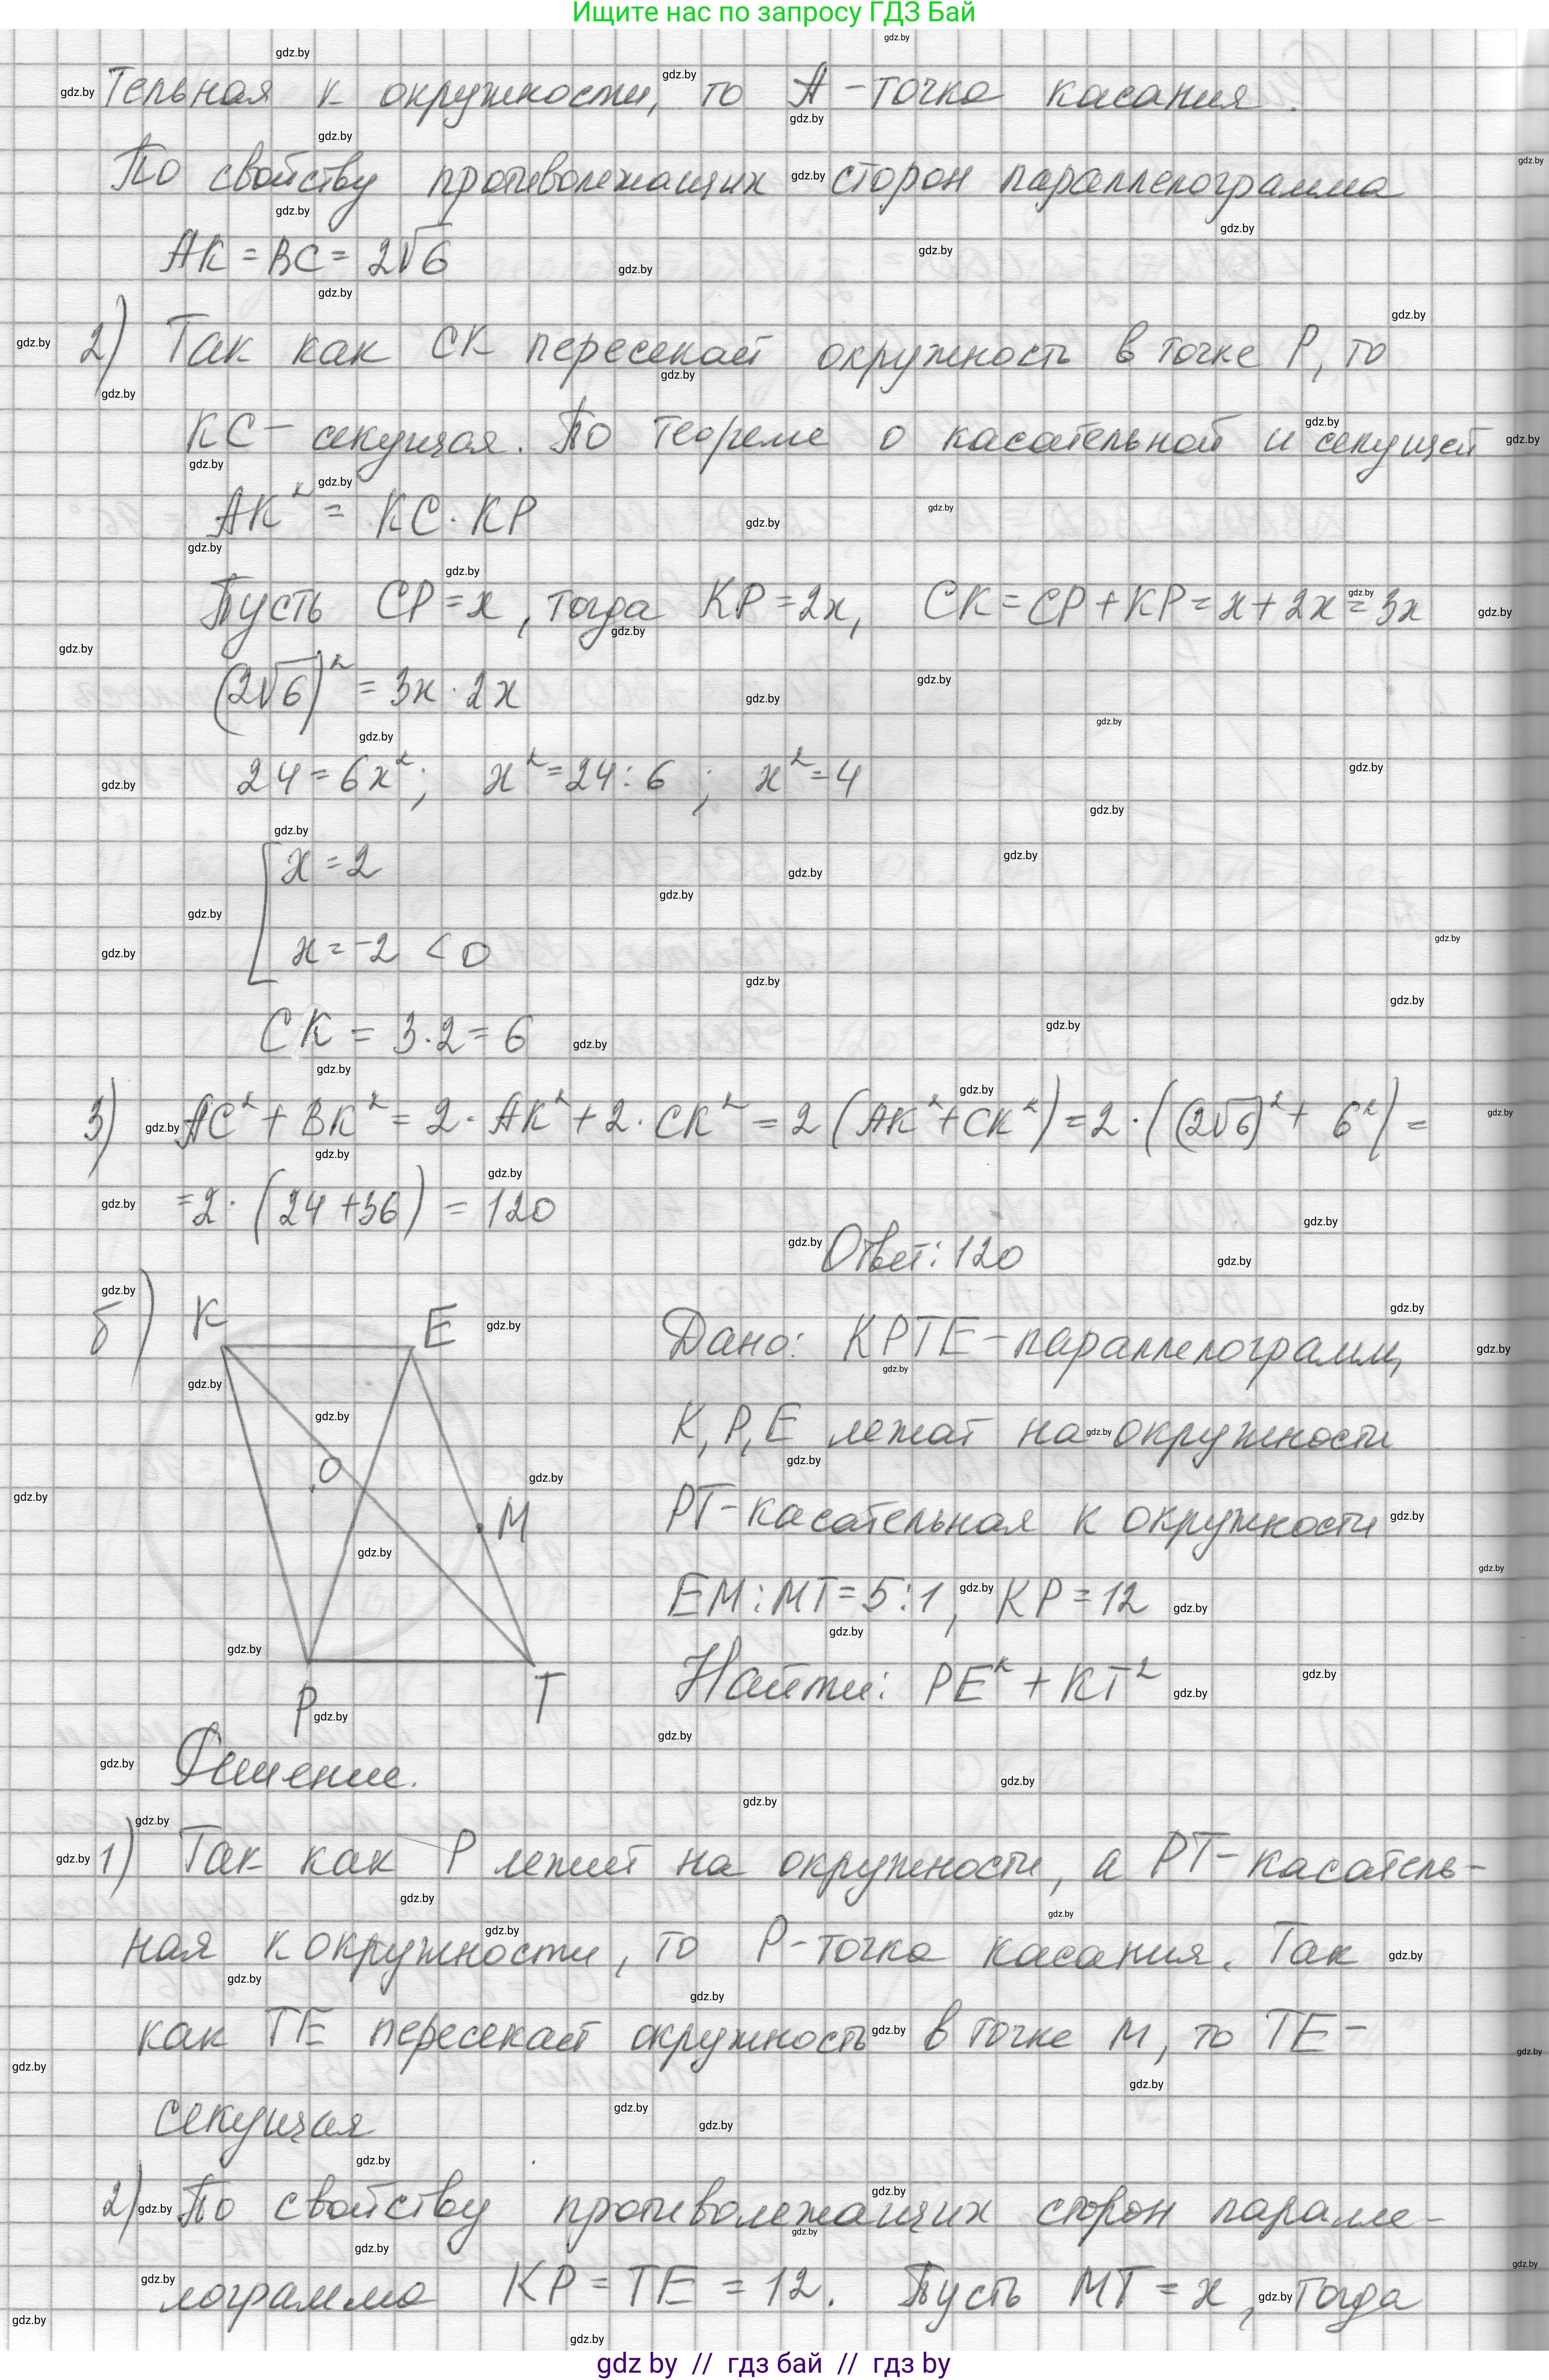 Ищите нас по запросу ГДЗ Бай
тельная к окружности, то A - точка касания.
По свойству противолежащих сторон параллелограмма
AK = BC = 2√6
2) Так как CK пересекает окружность в точке P, то
KC - секущая. По теореме о касательной и секущей
AK² = KC · KP
Пусть CP = x, тогда KP = 2x, CK = CP + KP = x + 2x = 3x
(2√6)² = 3x · 2x
24 = 6x²; x² = 24 : 6; x² = 4
[ x = 2
x = -2 < 0
CK = 3 · 2 = 6
3) AC² + BK² = 2 · AK² + 2 · CK² = 2(AK² + CK²) = 2 · ((2√6)² + 6²) =
= 2 · (24 + 36) = 120
Ответ: 120
б)
K
E
O
M
P
T
Дано: KPTE - параллелограмм,
K, P, E лежат на окружности
PT - касательная к окружности
EM : MT = 5 : 1, KP = 12
Найти: PE² + KT²
Решение.
1) Так как P лежит на окружности, а PT - касатель-
ная к окружности, то P - точка касания. Так
как TE пересекает окружность в точке M, то TE -
секущая
2) По свойству противолежащих сторон паралле-
лограмма KP = TE = 12. Пусть MT = x, тогда
gdz by // гдз бай // гдз by
gdz.by